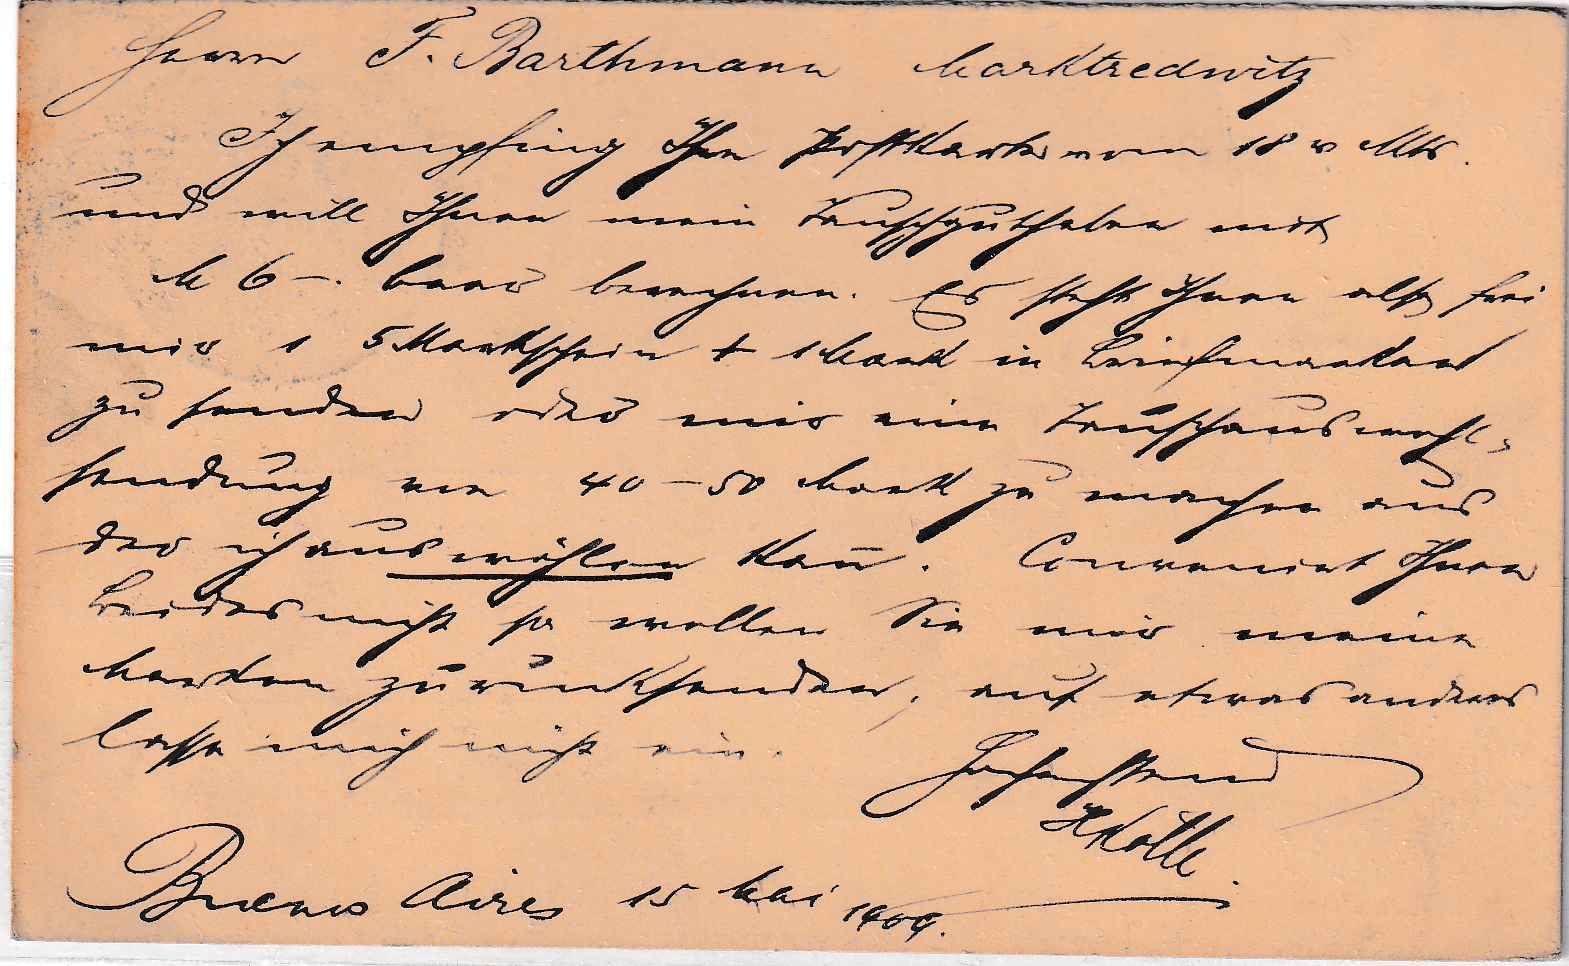 Herrn F. Barthmann Marktredwitz
Ich empfing Ihre Postkarte vom 18 v Mts.
und will Ihnen mein Tauschguthaben mit
M 6 –. baar berechnen. Es steht Ihnen also frei
mir 1 5 Markschein + 1 Mark in Briefmarken
zu senden oder mir eine Tauschauswahl-
sendung von 40 – 50 Mark zu machen aus
der ich auswählen kan̄. Conveniert Ihnen
Beides nicht so wollen Sie mir meine
Marken zurücksenden, auf etwas anderes
lasse mich nicht ein.
Hochachtend
H Kölle
Buenos Aires 15 Mai 1909.